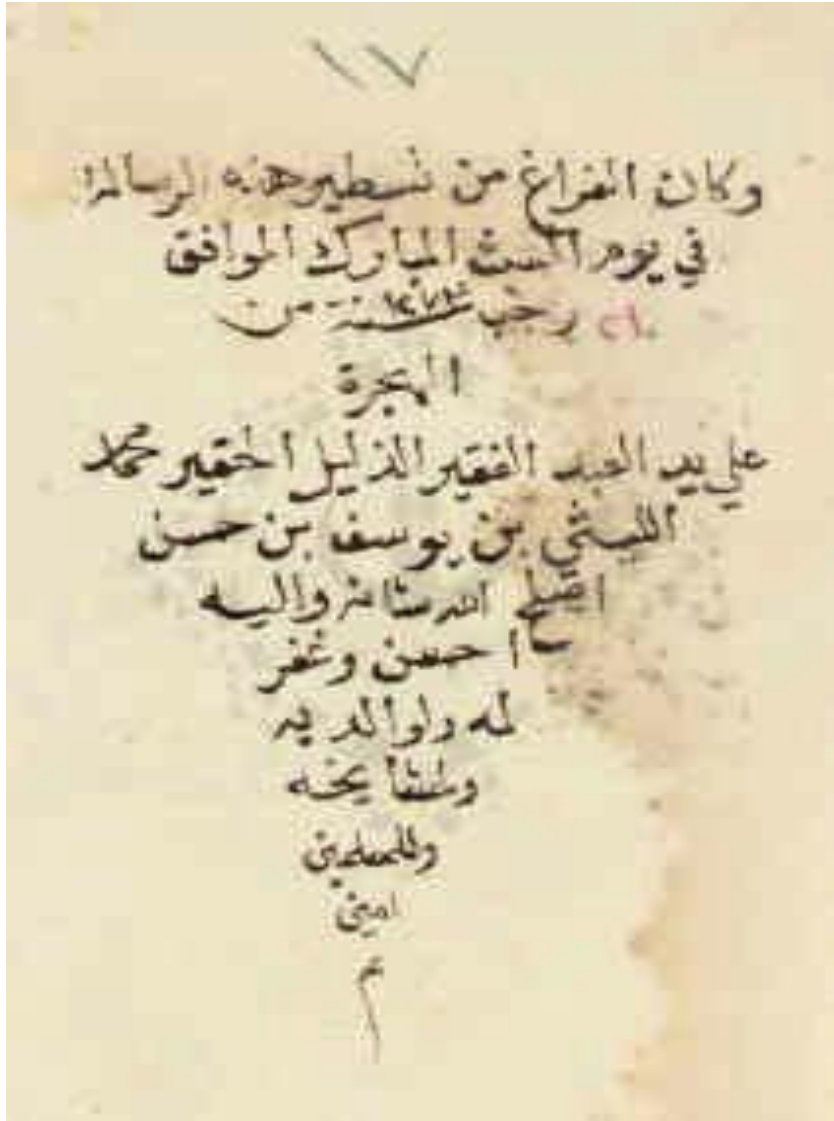 ١٧
وكان الفراغ من تسطير هذه الرسالة
في يوم السبت المبارك الموافق
رجب سنة من
الهجرة
علي يد العبد الفقير الذليل الحقير محمد
الليثي بن يوسف بن حسن
اصلح الله شانه واليه
احسن وغفر
له ولوالديه
ولمشايخه
وللمسلمين
امين
م